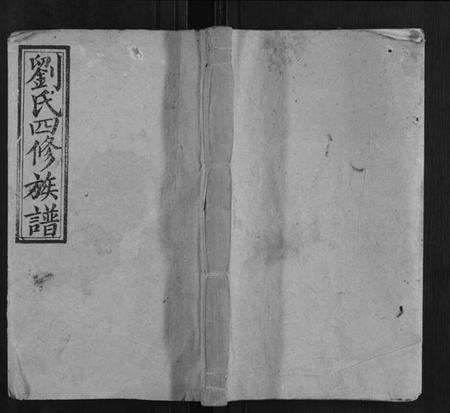 劉氏四修族譜